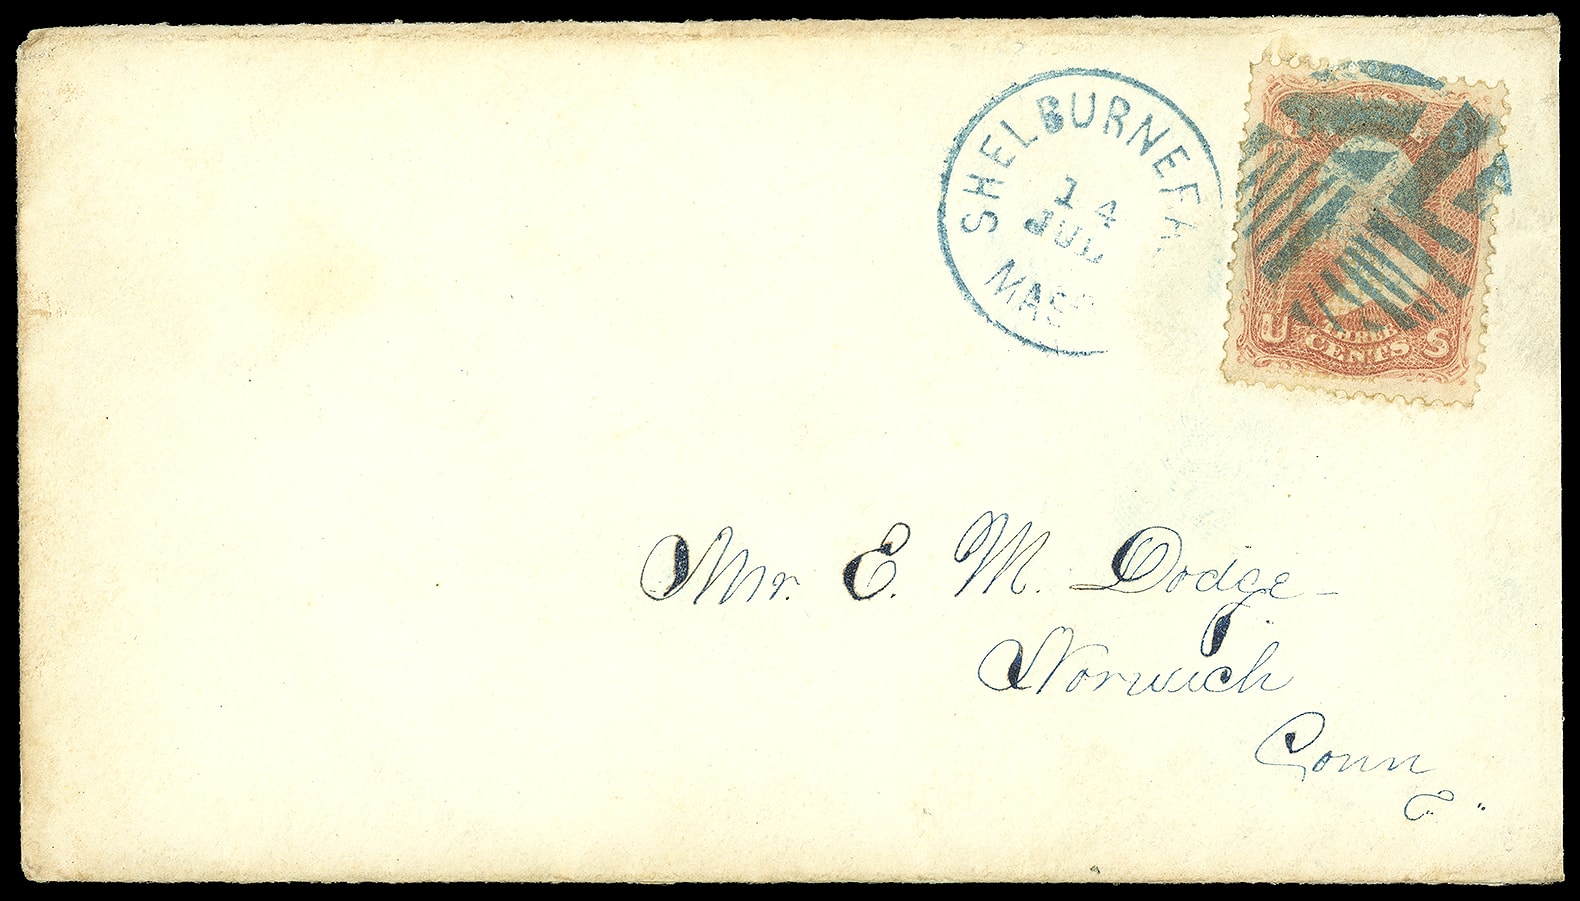 SHELBURNE FA
14
JUL
MASS
U THREE CENTS S
Mr. E. M. Dodge
Norwich
Conn